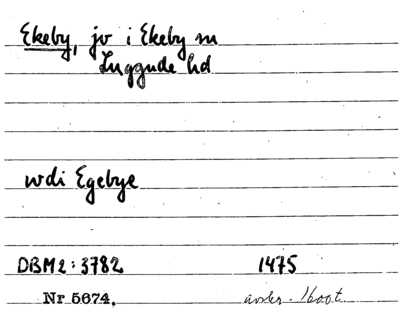 Ekeby, jv i Ekeby sn
Luggude hd
wdi Egebye
DBM2:3782 1475
Nr 5674. avskr. 1600t.